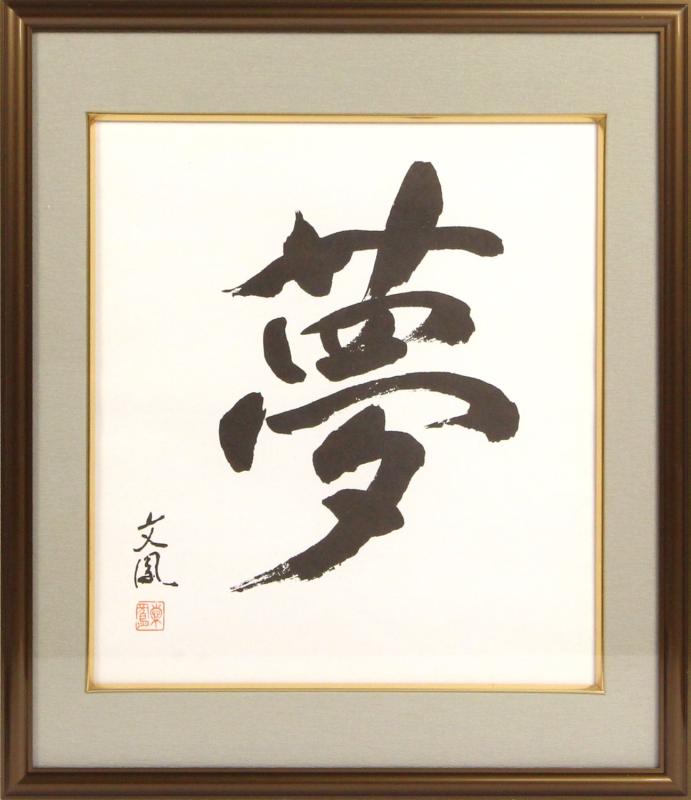 夢
文鳳